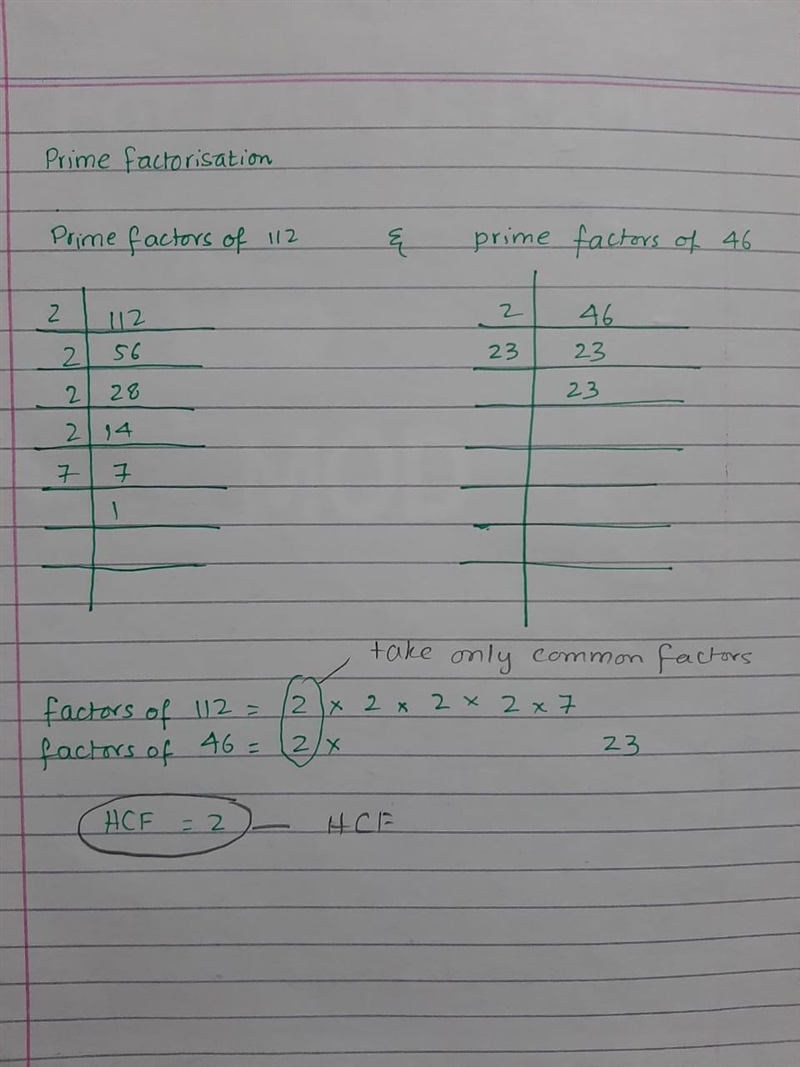 Prime factorisation
Prime factors of 112 & prime factors of 46
2 112 2 46
2 56 23 23
2 28 23
2 14
7 7
1
take only common factors
factors of 112 = 2 × 2 × 2 × 2 × 7
factors of 46 = 2 × 23
HCF = 2 — HCF